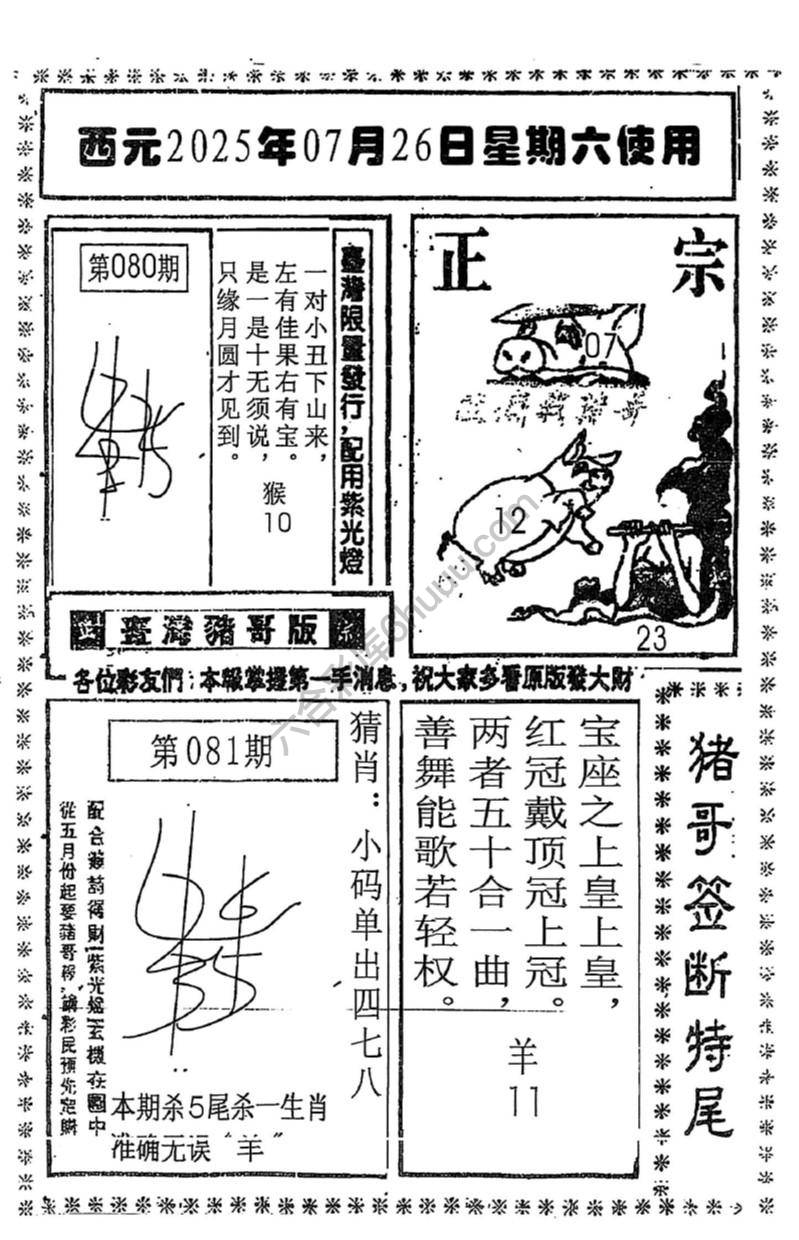 西元2025年07月26日星期六使用
第080期
臺灣限量發行,配用紫光燈
一对小丑下山来,
左有佳果右有宝。
是一是十无须说,
只缘月圆才见到。
猴
10
正宗
07
12
23
正 臺灣豬哥版 宗
各位彩友們:本報掌握第一手消息,祝大家多看原版發大財
第081期
猜肖:小码单出四七八
從五月份起要豬哥報
本期杀5尾杀一生肖
准确无误“羊”
宝座之上皇上皇,
红冠戴顶冠上冠。
两者五十合一曲,
善舞能歌若轻权。
羊
11
猪哥签断特尾
六合彩库6huuu.com